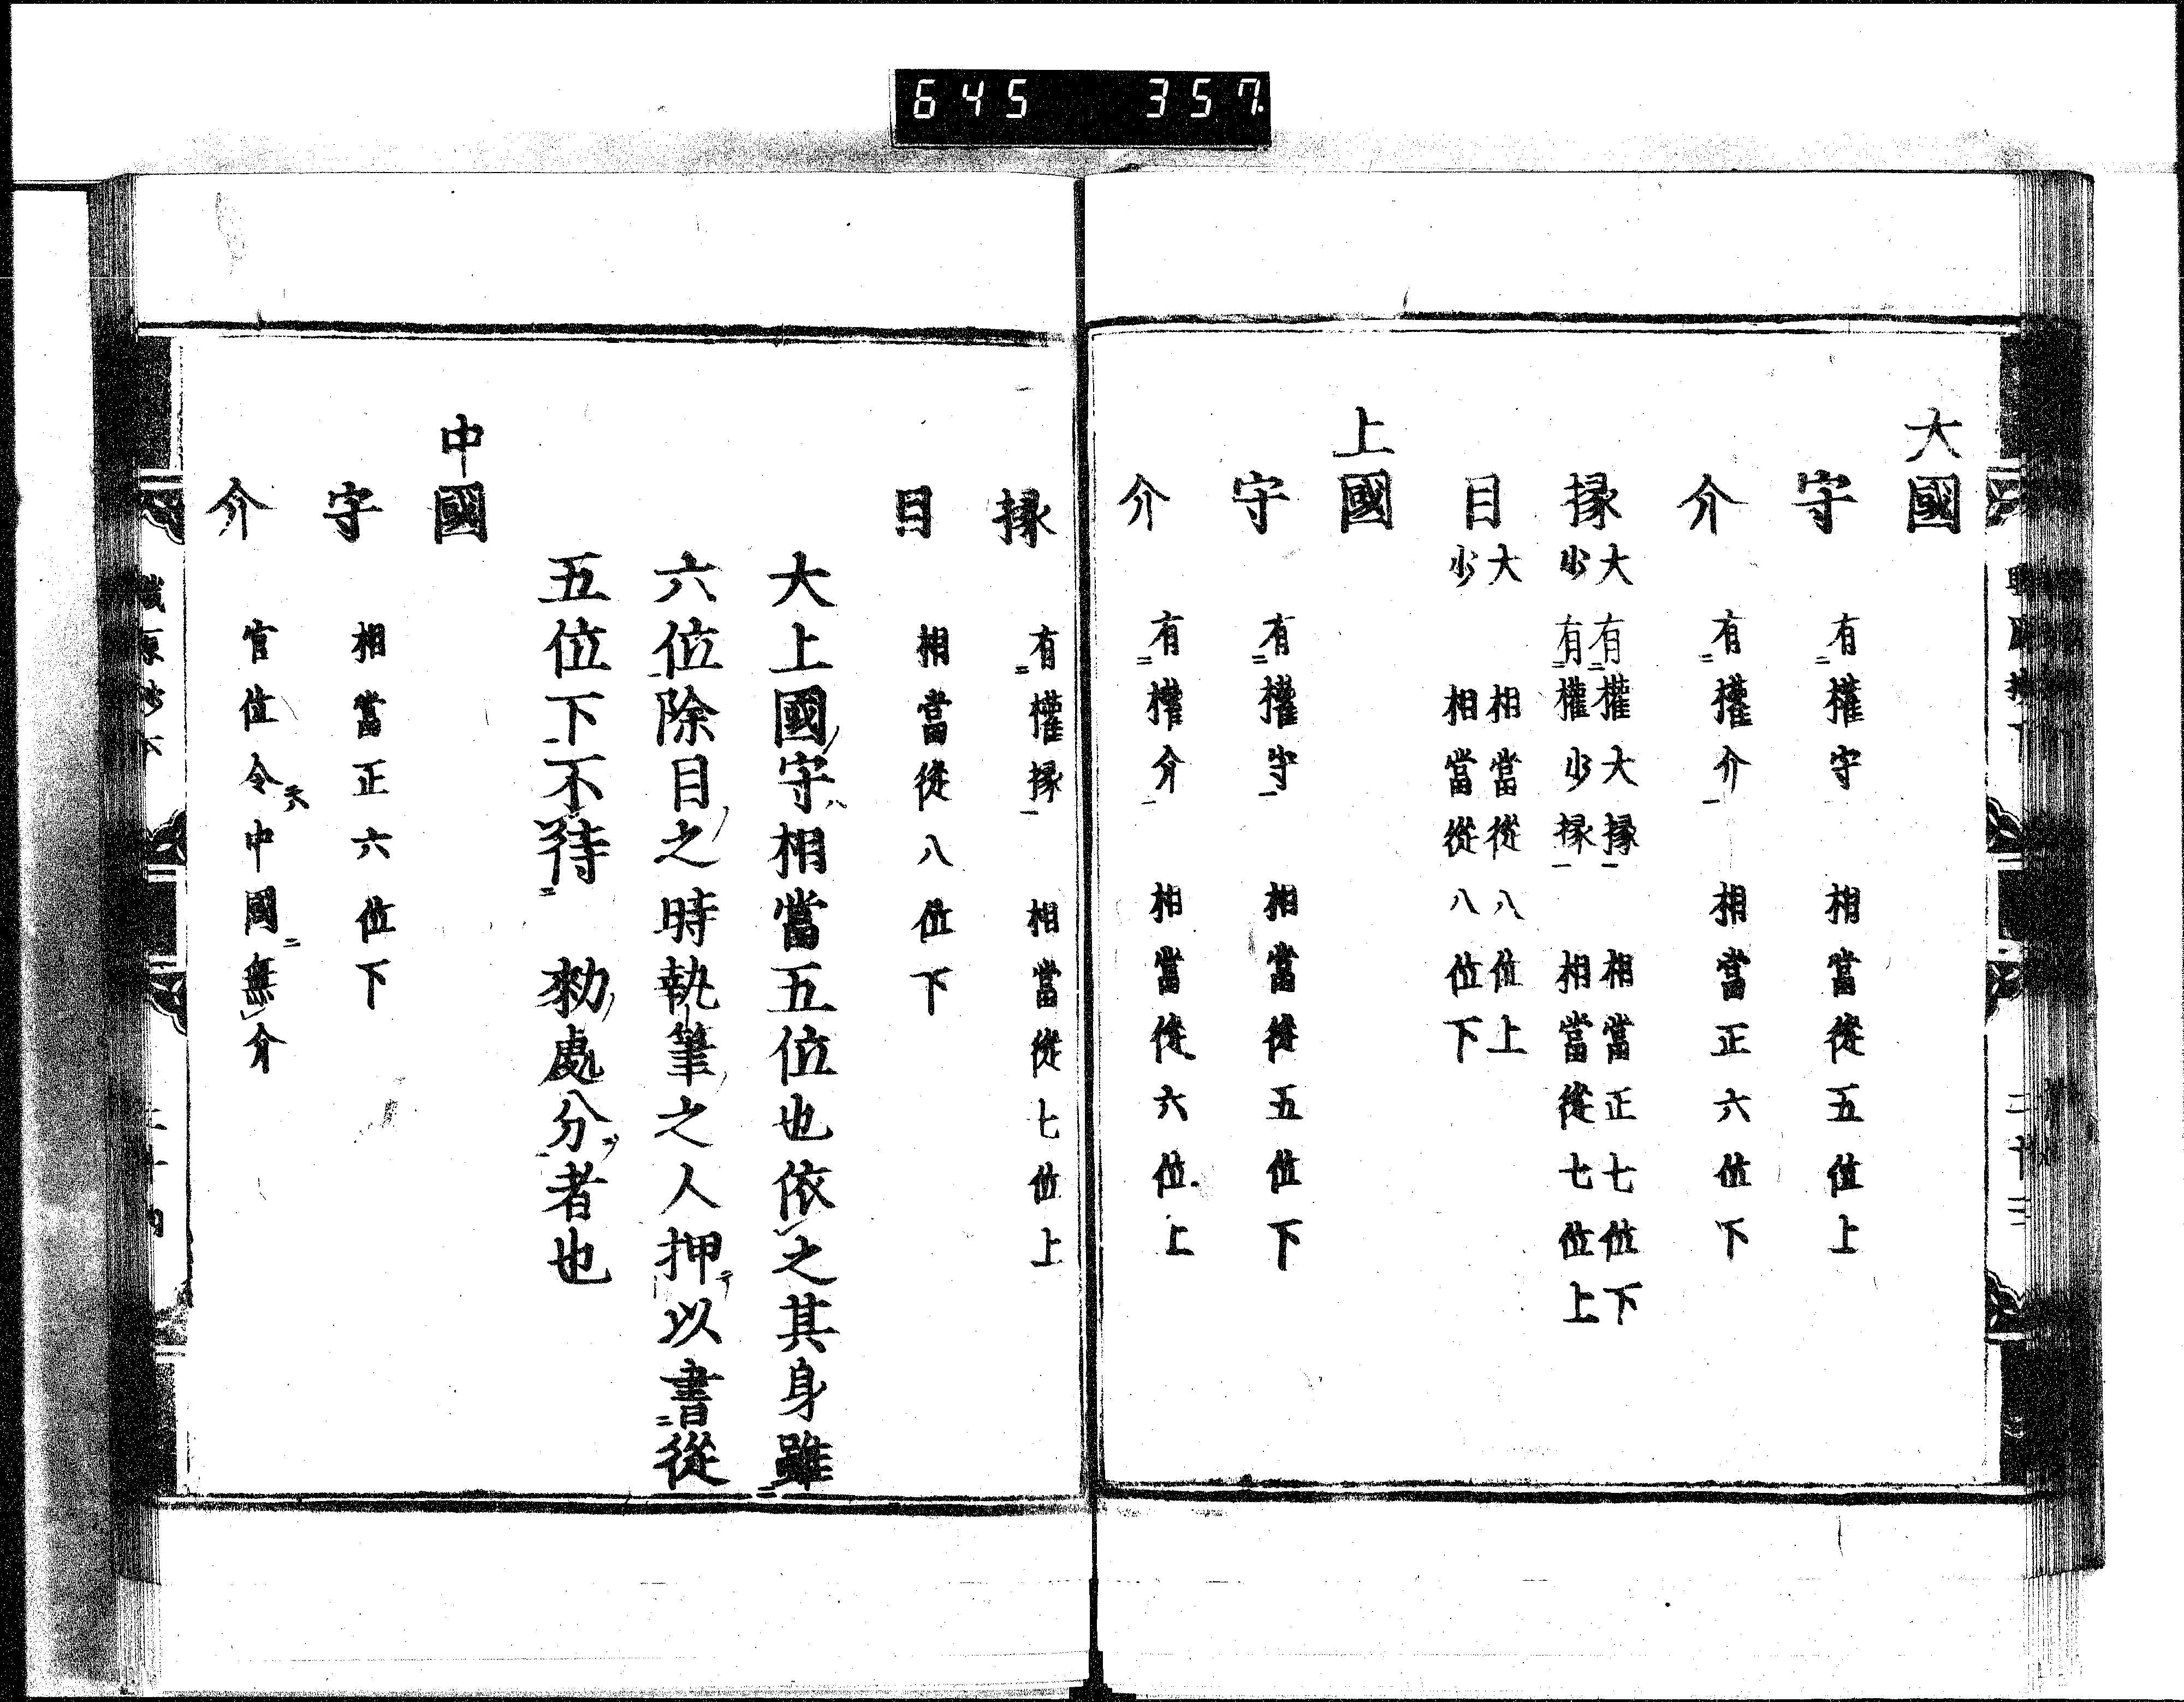 645 357
大國
守 有權守 相當從五位上
介 有權介 相當正六位下
掾 大 有權大掾 相當正七位下
少 有權少掾 相當從七位上
目 大 相當從八位上
少 相當從八位下
上國
守 有權守 相當從五位下
介 有權介 相當從六位上
掾 有權掾 相當從七位上
目 相當從八位下
大上國守相當五位也依之其身雖
六位除目之時執筆之人押以書從
五位下不待 勑處分者也
中國
守 相當正六位下
介 官位令中國無介